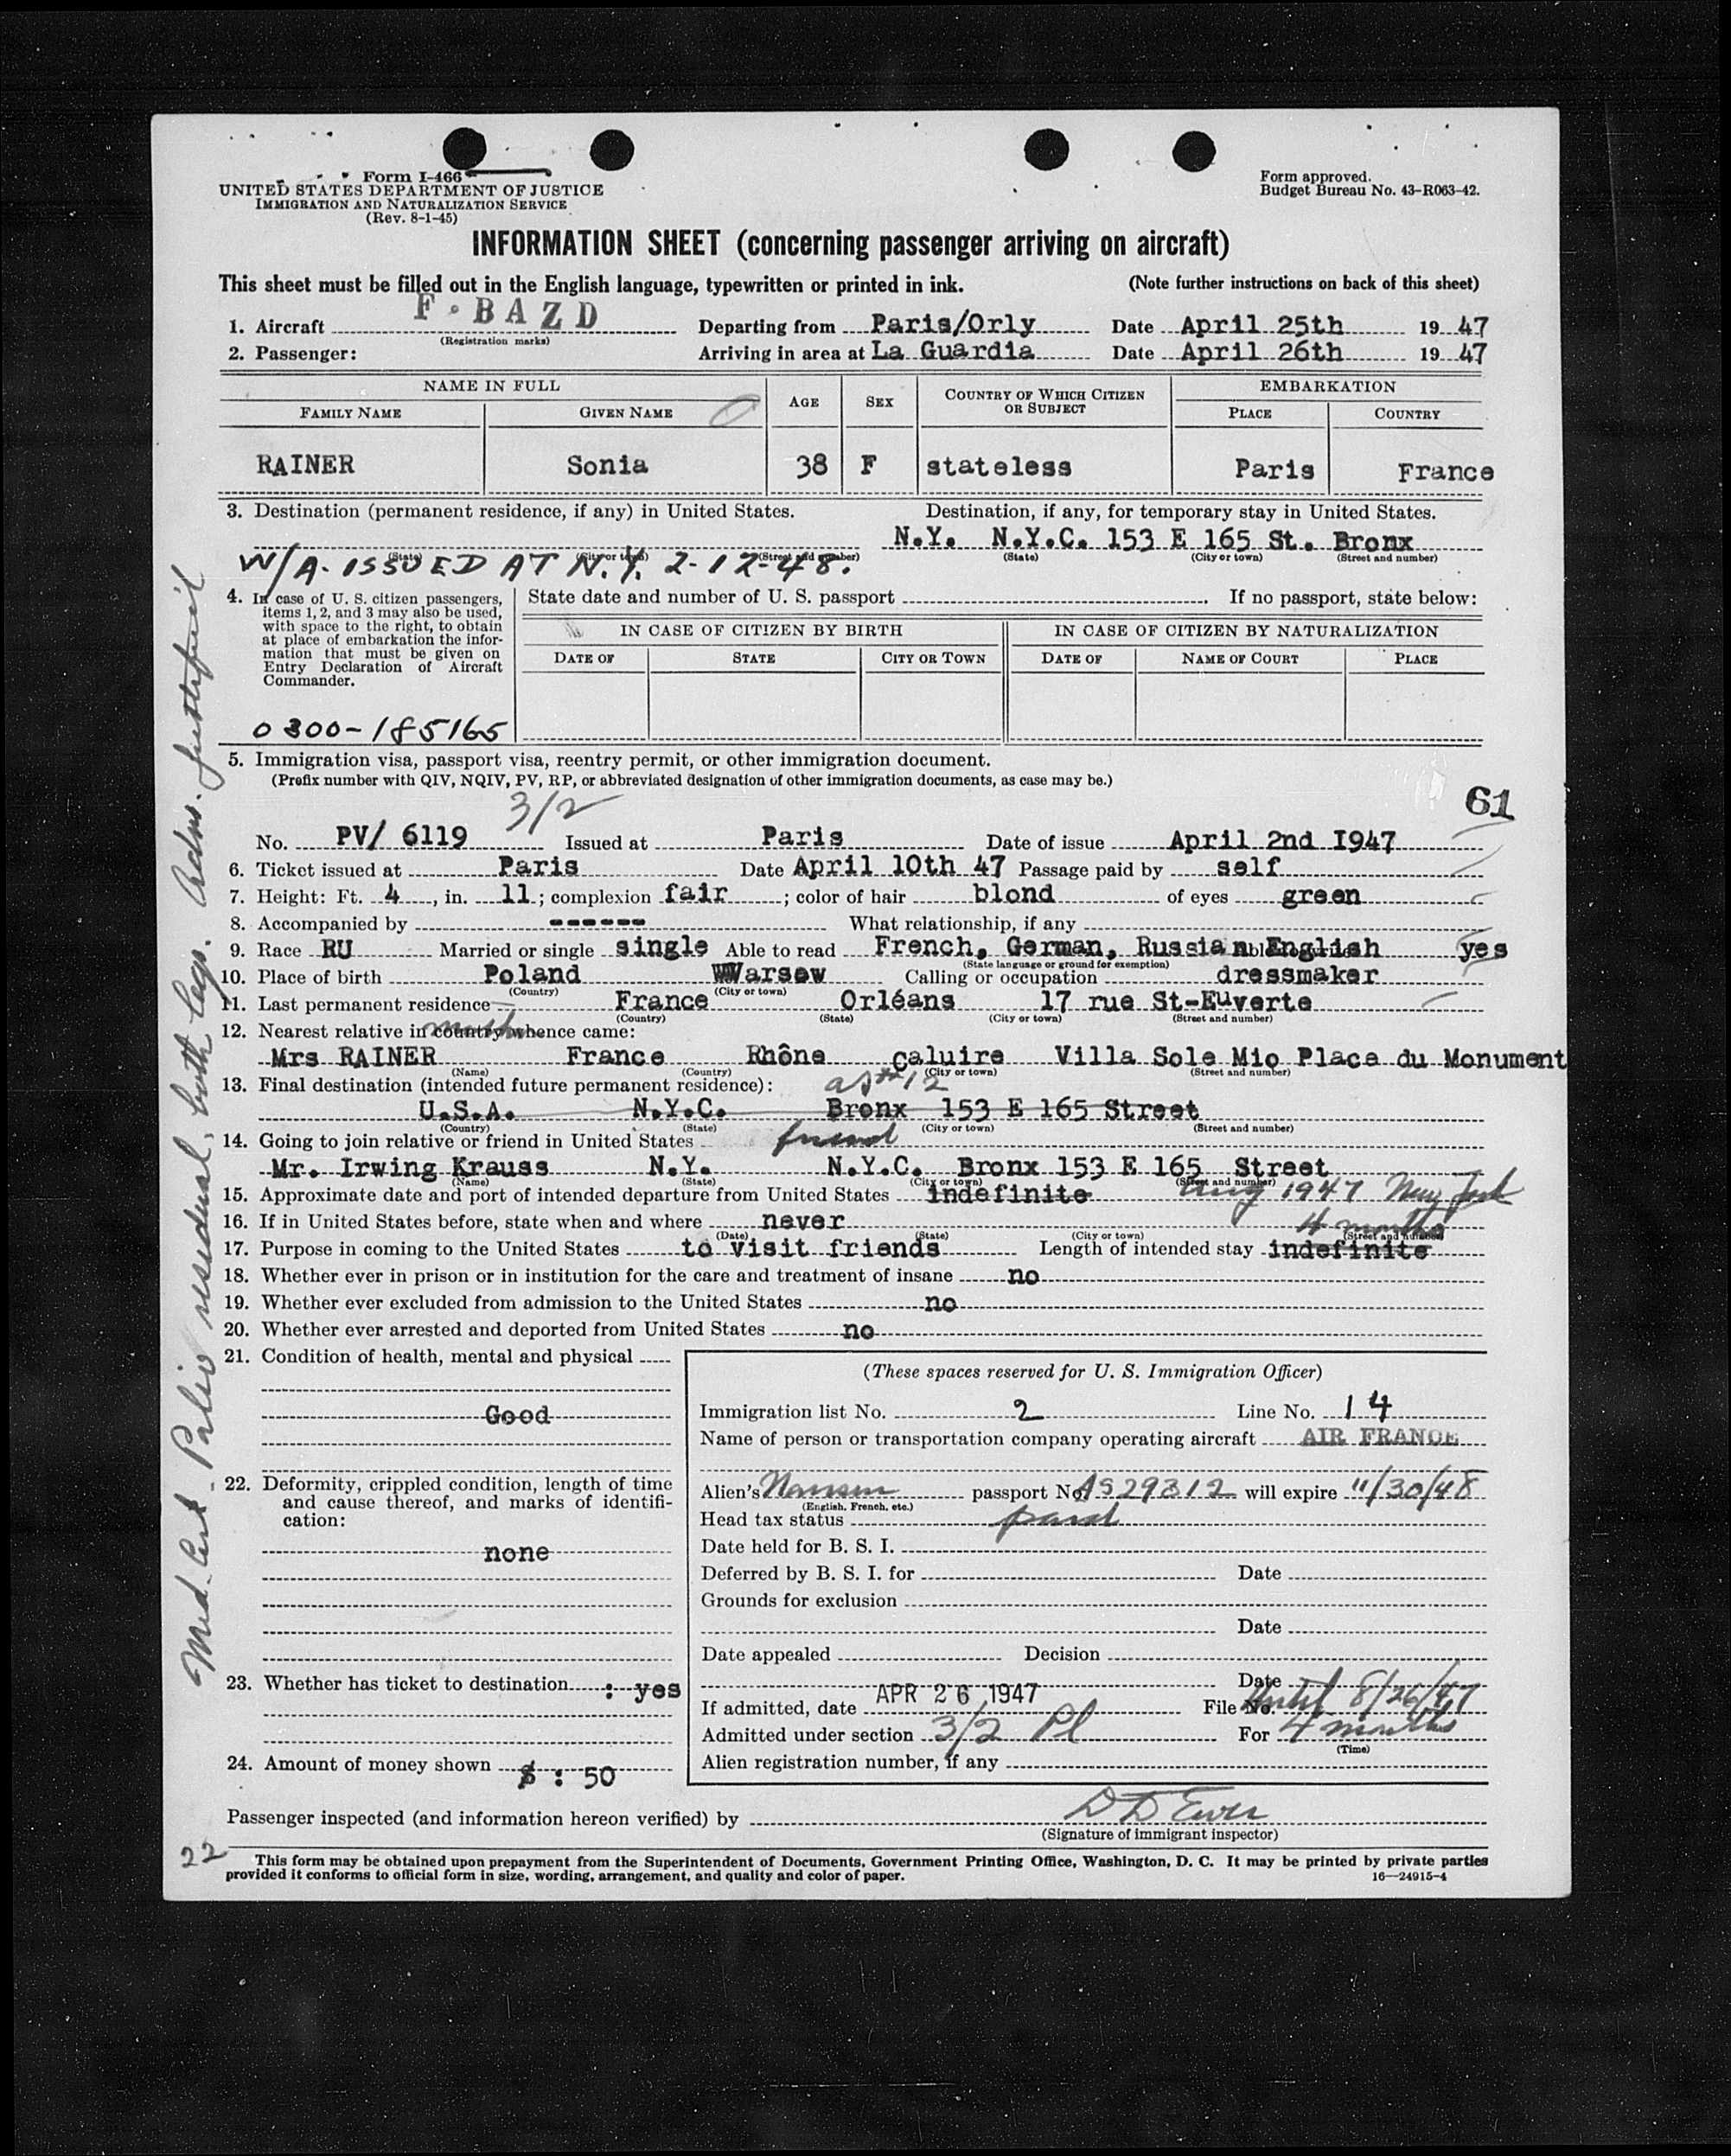 Form I-466
UNITED STATES DEPARTMENT OF JUSTICE
IMMIGRATION AND NATURALIZATION SERVICE
(Rev. 8-1-45)
Form approved.
Budget Bureau No. 43-R063-42.
INFORMATION SHEET (concerning passenger arriving on aircraft)
This sheet must be filled out in the English language, typewritten or printed in ink. (Note further instructions on back of this sheet)
1. Aircraft F-BAZD Departing from Paris/Orly Date April 25th 19 47
(Registration marks)
2. Passenger: Arriving in area at La Guardia Date April 26th 19 47
NAME IN FULL AGE SEX COUNTRY OF WHICH CITIZEN OR SUBJECT EMBARKATION
FAMILY NAME GIVEN NAME PLACE COUNTRY
RAINER Sonia 38 F stateless Paris France
3. Destination (permanent residence, if any) in United States. Destination, if any, for temporary stay in United States.
N.Y. N.Y.C. 153 E 165 St. Bronx
(State) (City or town) (Street and number) (State) (City or town) (Street and number)
W/A. ISSUED AT N.Y. 2-12-48.
4. In case of U. S. citizen passengers, items 1, 2, and 3 may also be used, with space to the right, to obtain at place of embarkation the information that must be given on Entry Declaration of Aircraft Commander.
State date and number of U. S. passport If no passport, state below:
IN CASE OF CITIZEN BY BIRTH IN CASE OF CITIZEN BY NATURALIZATION
DATE OF STATE CITY OR TOWN DATE OF NAME OF COURT PLACE
0300-185165
5. Immigration visa, passport visa, reentry permit, or other immigration document.
(Prefix number with QIV, NQIV, PV, RP, or abbreviated designation of other immigration documents, as case may be.)
3/2
61
No. PV/ 6119 Issued at Paris Date of issue April 2nd I947
6. Ticket issued at Paris Date April 10th 47 Passage paid by self
7. Height: Ft. 4, in. 11; complexion fair; color of hair blond of eyes green
8. Accompanied by ------ What relationship, if any
9. Race RU Married or single single Able to read French, German, Russian English yes
(State language or ground for exemption)
10. Place of birth Poland Warsow Calling or occupation dressmaker
(Country) (City or town)
11. Last permanent residence France Orléans 17 rue St-Euverte
(Country) (State) (City or town) (Street and number)
12. Nearest relative in country whence came: mother
Mrs RAINER France Rhône caluire Villa Sole Mio Place du Monument
(Name) (Country) (City or town) (Street and number)
13. Final destination (intended future permanent residence): as #12
U.S.A. N.Y.C. Bronx 153 E 165 Street
(Country) (State) (City or town) (Street and number)
14. Going to join relative or friend in United States friend
Mr. Irwing Krauss N.Y. N.Y.C. Bronx 153 E 165 Street
(Name) (State) (City or town) (Street and number)
15. Approximate date and port of intended departure from United States indefinite Aug 1947 New York
16. If in United States before, state when and where never
(Date) (State) (City or town) (Street and number)
4 months
17. Purpose in coming to the United States to visit friends Length of intended stay indefinite
18. Whether ever in prison or in institution for the care and treatment of insane no
19. Whether ever excluded from admission to the United States no
20. Whether ever arrested and deported from United States no
21. Condition of health, mental and physical
Good
22. Deformity, crippled condition, length of time and cause thereof, and marks of identification:
none
23. Whether has ticket to destination : yes
24. Amount of money shown $ : 50
(These spaces reserved for U. S. Immigration Officer)
Immigration list No. 2 Line No. 14
Name of person or transportation company operating aircraft AIR FRANCE
Alien's Nansen passport No. AS29312 will expire 11/30/48
(English, French, etc.)
Head tax status paid
Date held for B. S. I.
Deferred by B. S. I. for Date
Grounds for exclusion
Date
Date appealed Decision
Date
If admitted, date APR 26 1947 File No. Until 8/26/47
Admitted under section 3/2 Pl For 4 months
(Time)
Alien registration number, if any
Passenger inspected (and information hereon verified) by
(Signature of immigrant inspector)
22
This form may be obtained upon prepayment from the Superintendent of Documents, Government Printing Office, Washington, D. C. It may be printed by private parties
provided it conforms to official form in size, wording, arrangement, and quality and color of paper. 16—24915-4
Med. Cert. Polio residual, both legs.